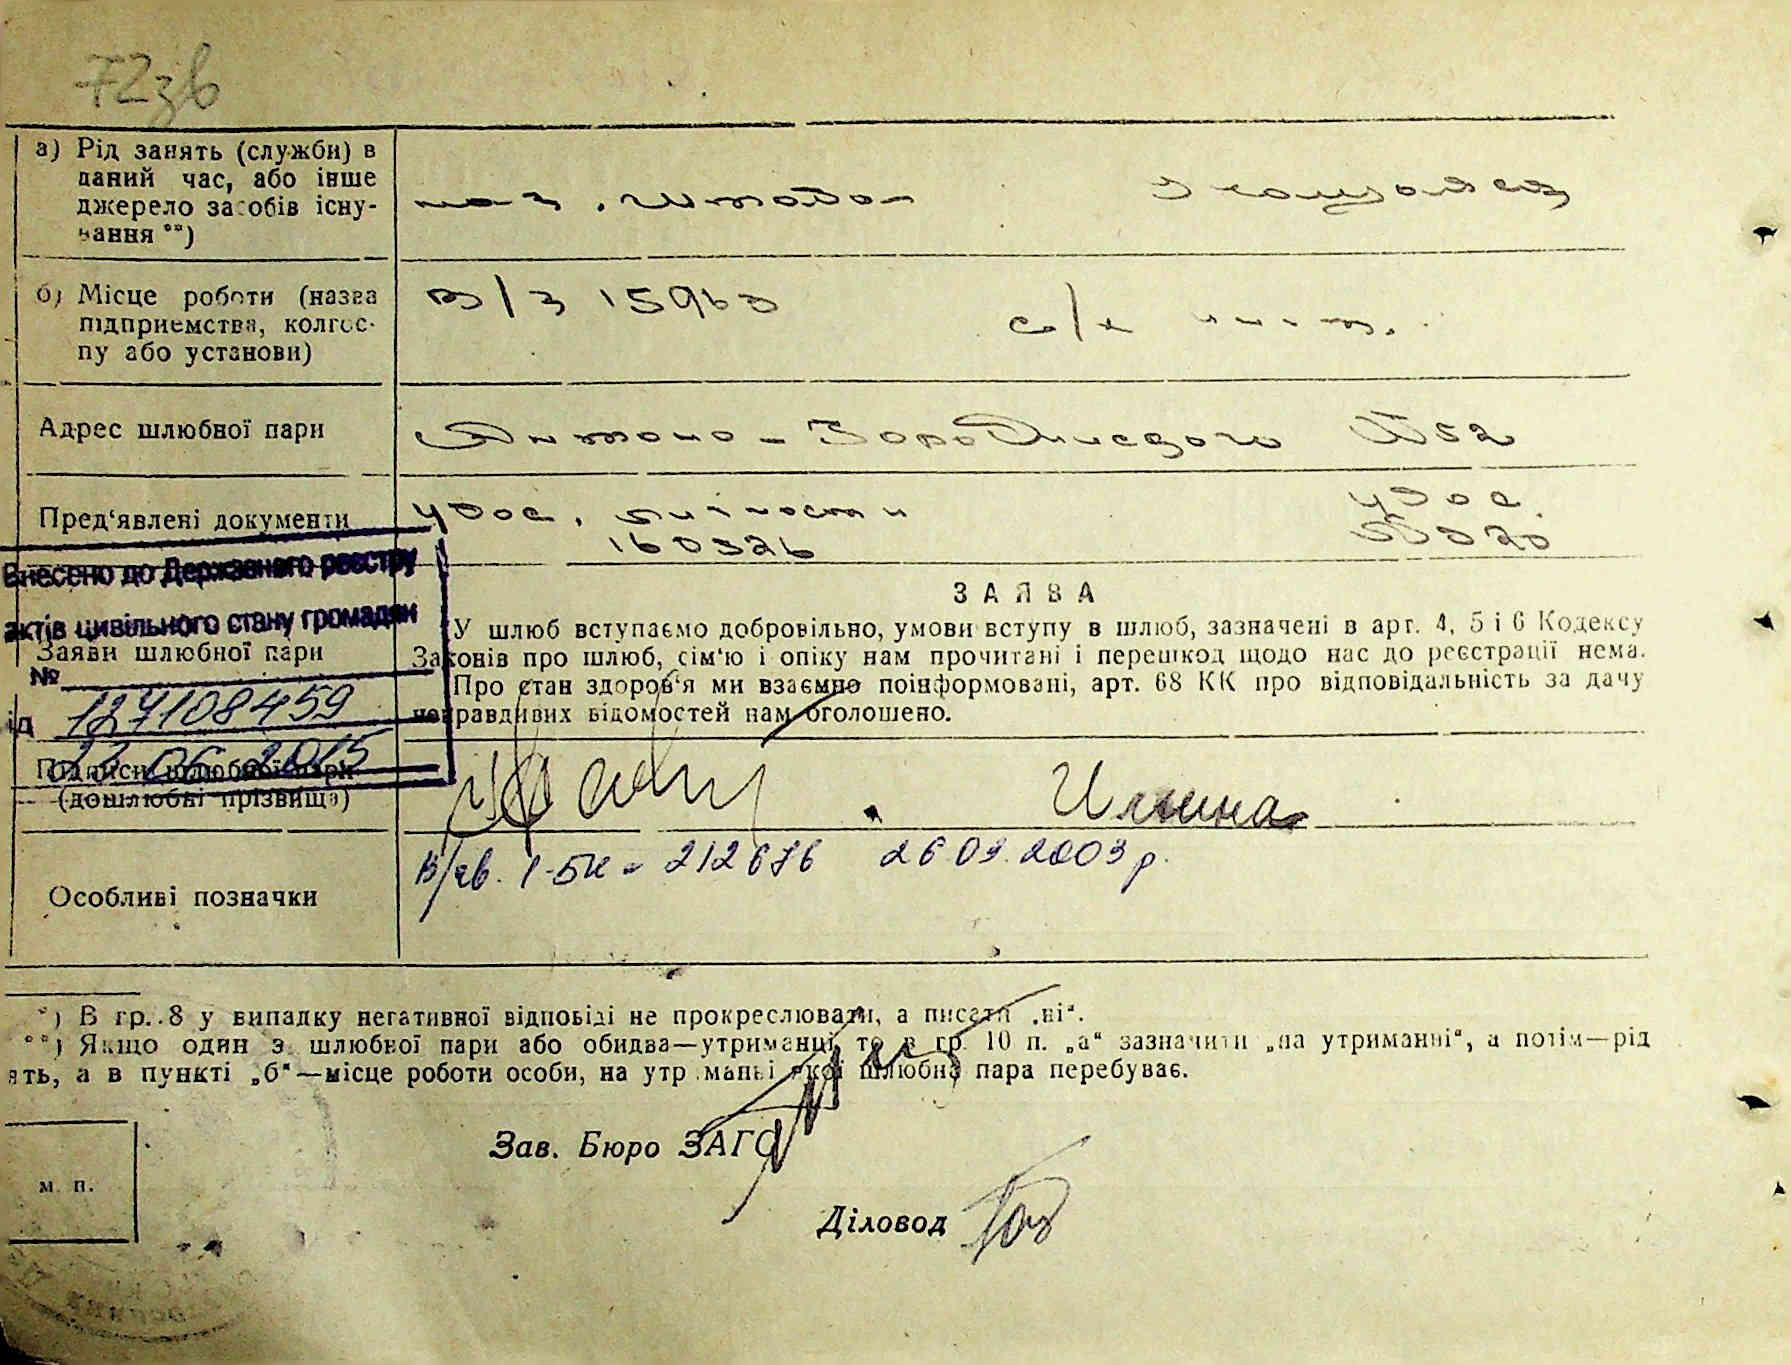 72зв
а) Рід занять (служби) в
даний час, або інше
джерело засобів існу-
вання **)
б) Місце роботи (назва
підприємства, колгос-
пу або установи)
в/з 15963
с/х
Адрес шлюбної пари
52
Пред‘явлені документи
удос. личности
160326
удос.
Внесено до Державного реєстру
актів цивільного стану громадян
№ 127108459
від 23 06 2015
ЗАЯВА
Заяви шлюбної пари
У шлюб вступаємо добровільно, умови вступу в шлюб, зазначені в арт. 4, 5 і 6 Кодексу
Законів про шлюб, сім‘ю і опіку нам прочитані і перешкод щодо нас до реєстрації нема.
Про стан здоров‘я ми взаємно поінформовані, арт. 68 КК про відповідальність за дачу
неправдивих відомостей нам оголошено.
Підписи шлюбної пари
(дошлюбні прізвища)
Ильина
Особливі позначки
В/св. І-БК - 212676 26.09.2003 р.
*) В гр. 8 у випадку негативної відповіді не прокреслювати, а писати „ні“.
**) Якщо один з шлюбної пари або обидва—утриманці, то в гр. 10 п. „а“ зазначити „на утриманні“, а потім—рід
ять, а в пункті „б“—місце роботи особи, на утриманні якої шлюбна пара перебуває.
Зав. Бюро ЗАГС
м. п.
Діловод